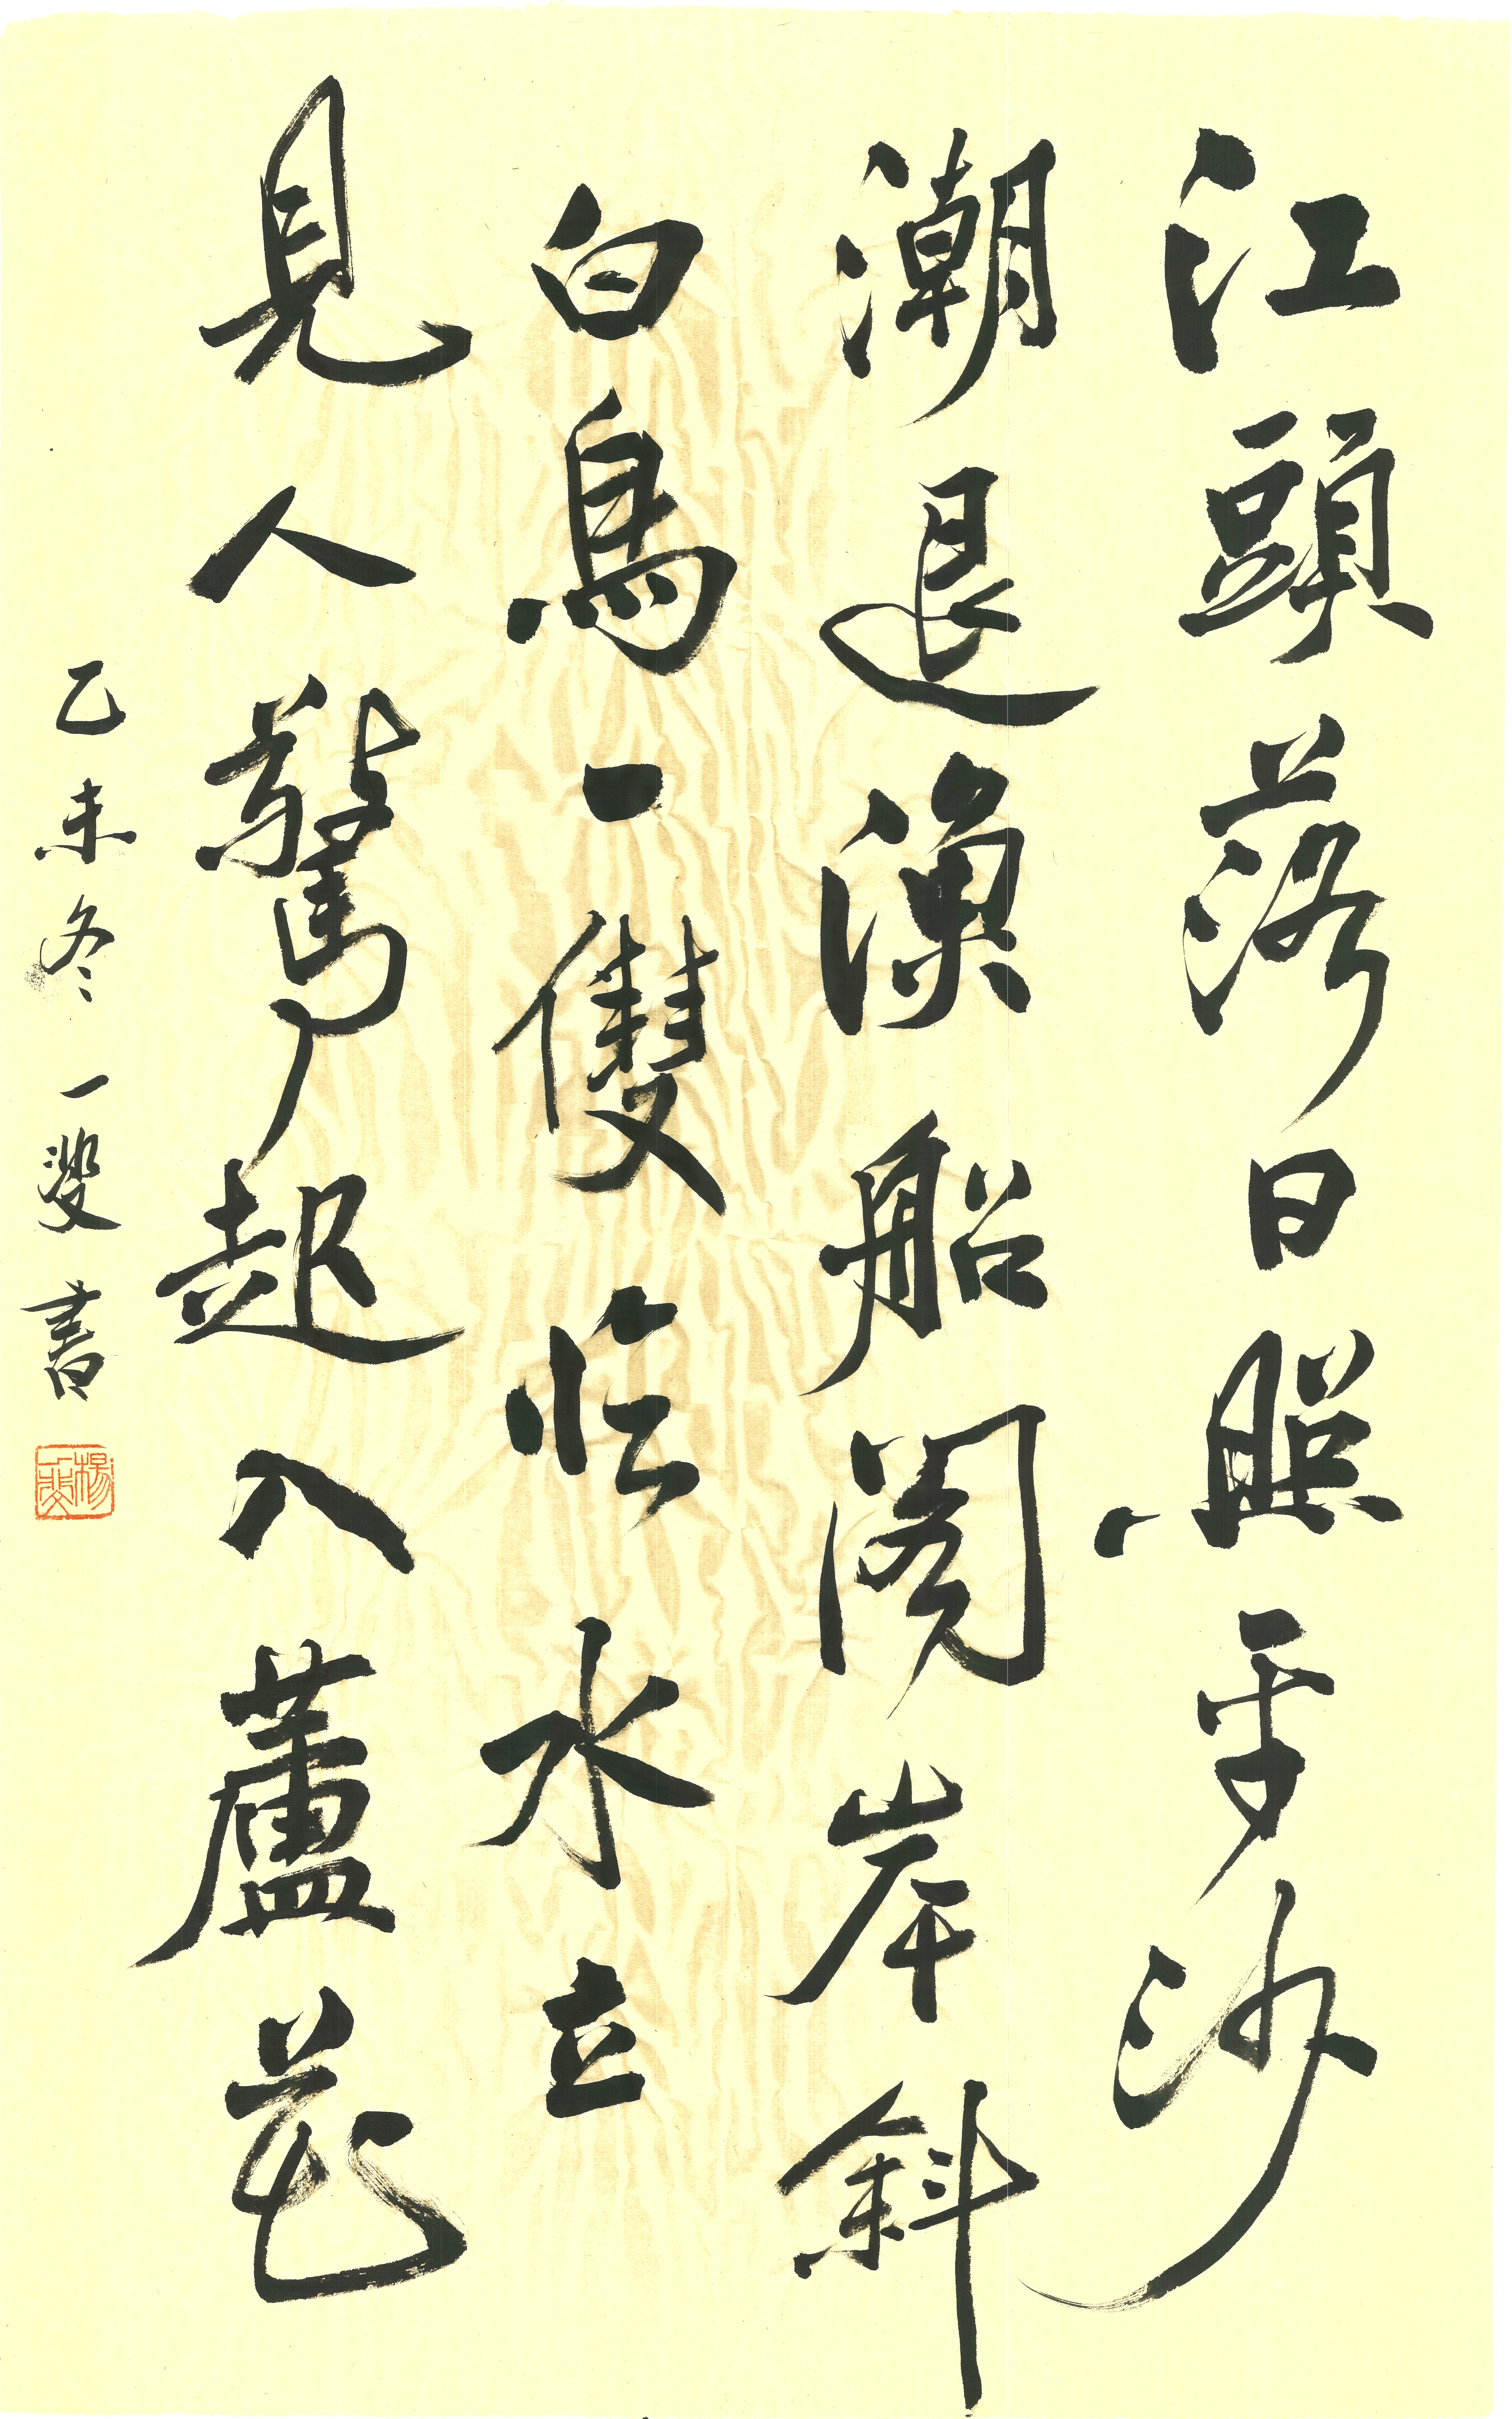 江頭落日照平沙
潮退漁船閣岸斜
白鳥一雙臨水立
見人驚起入蘆花
乙未冬一斐書
楊一斐